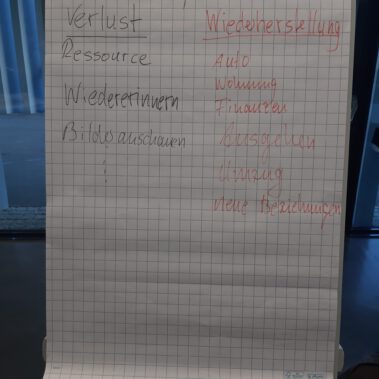 Verlust
Ressource
Wiedererinnern
Bilder anschauen
Wiederherstellung
Auto
Wohnung
Finanzen
Ausgehen
Umzug
neue Beziehungen